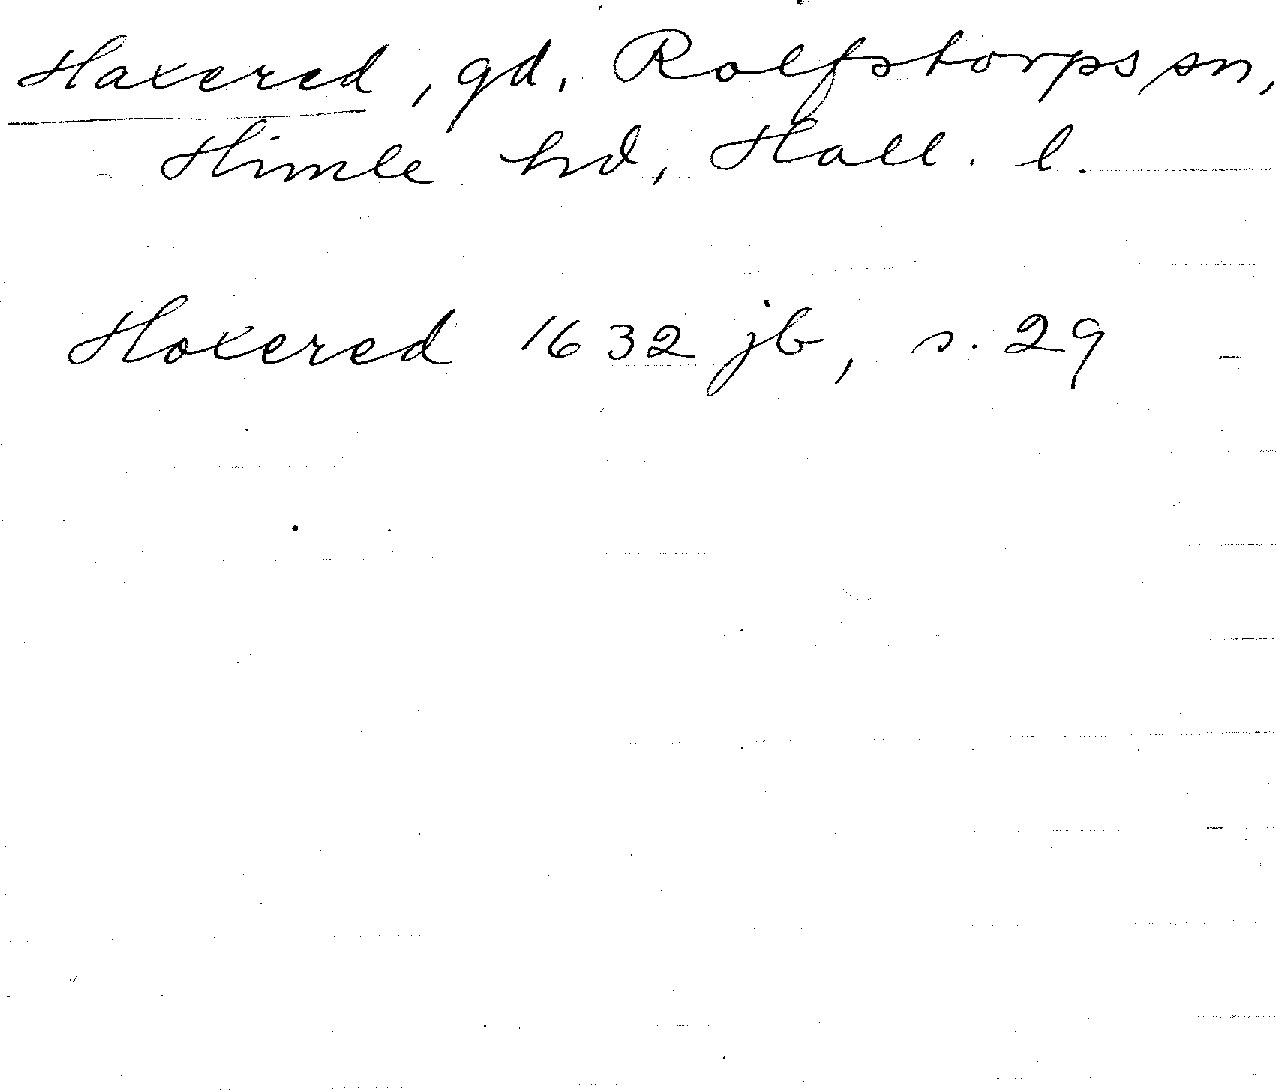 Haxered, gd, Rolfstorps sn,
Himle hd, Hall. l.
Hoxered 1632 jb, s. 29